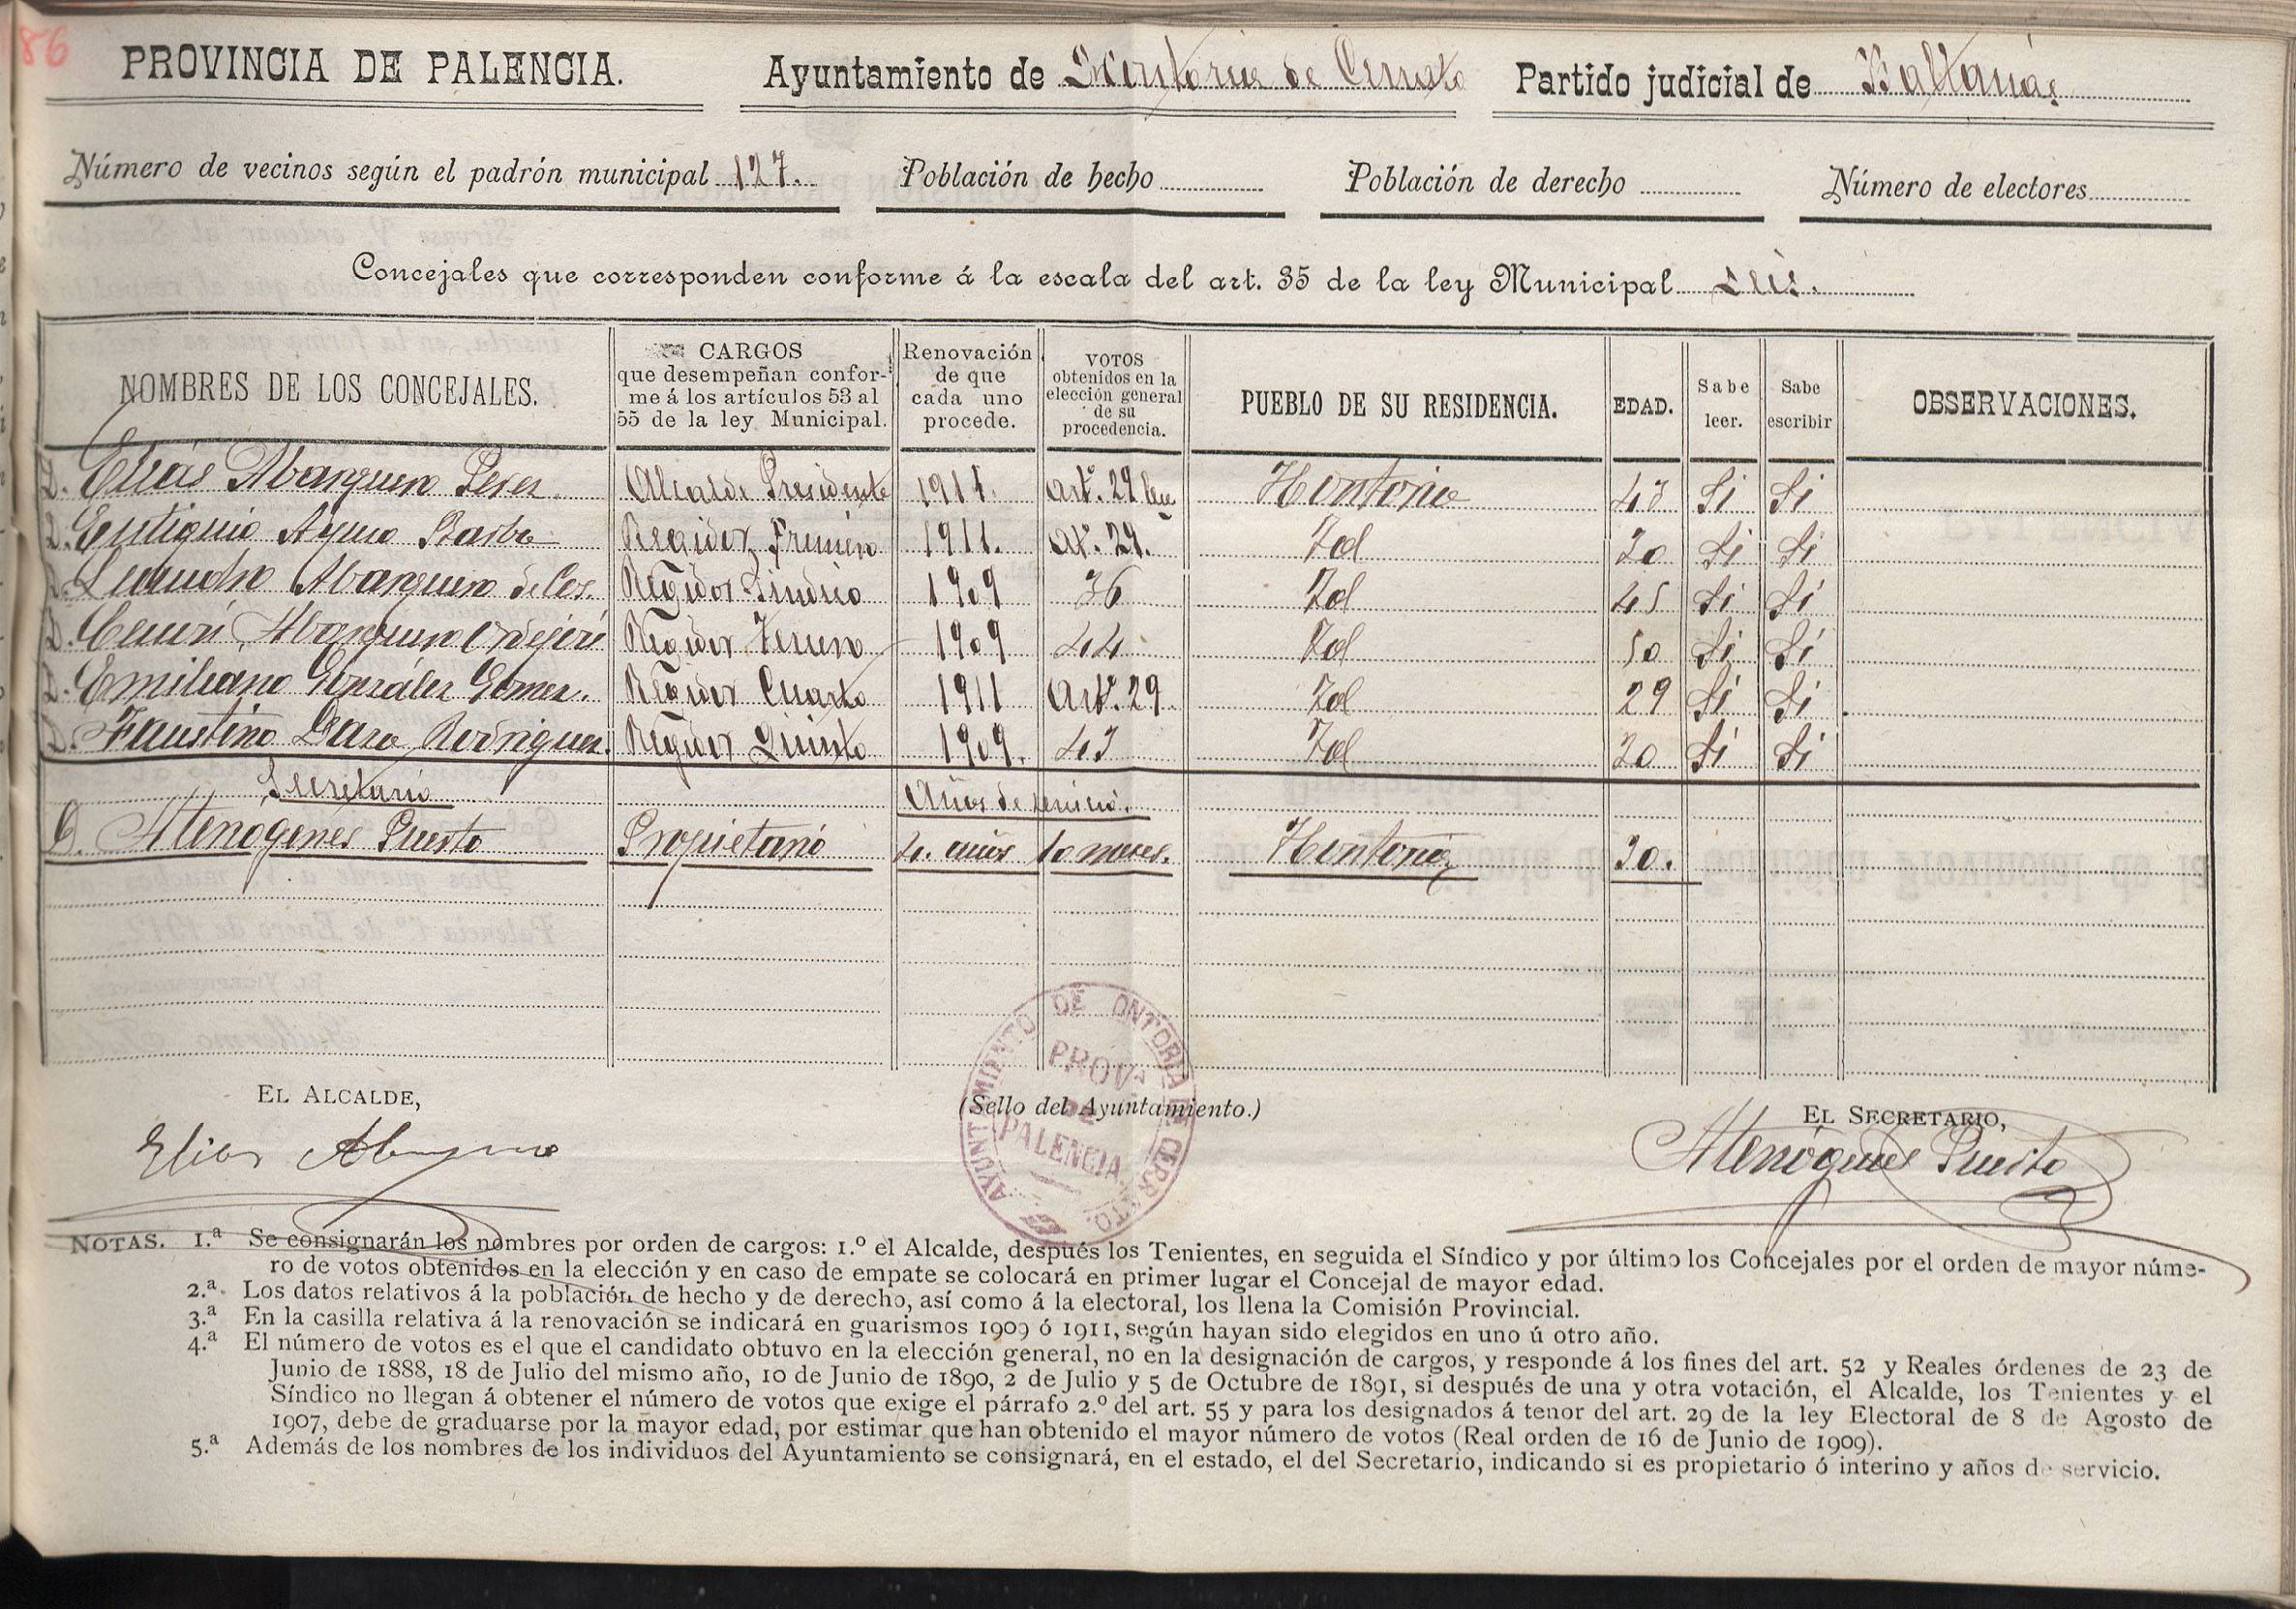 86
PROVINCIA DE PALENCIA. Ayuntamiento de Hontoria de Cerrato Partido judicial de Baltanás
Número de vecinos según el padrón municipal 127. Población de hecho Población de derecho Número de electores
Concejales que corresponden conforme á la escala del art. 35 de la ley Municipal Seis.
NOMBRES DE LOS CONCEJALES. CARGOS que desempeñan confor-me á los artículos 53 al 55 de la ley Municipal. Renovación de que cada uno procede. VOTOS obtenidos en la elección general de su procedencia. PUEBLO DE SU RESIDENCIA. EDAD. Sabe leer. Sabe escribir OBSERVACIONES.
D. Elías Abarquero Perez Alcalde Presidente 1911. Art. 29 ley Hontoria 43 Si Si
D. Eutiquio Ayuso Barba Regidor Primero 1911. At. 29. Id 30 Si Si
D. Abarquero de Cos. Regidor Sindico 1909 36 Id 45 Si Si
D. Abarquero Regidor Tercero 1909 44 Id 50 Si Si
D. Emiliano González Gómez. Regidor Cuarto 1911 Art. 29 Id 29 Si Si
D. Faustino Rodriguez. Regidor Quinto 1909. 43 Id 30 Si Si
Secretario Años de servicio.
D. Atenogenes Puerto Propietario 4. años 10 meses. Hontoria 30.
EL ALCALDE, (Sello del Ayuntamiento.) EL SECRETARIO,
Elias Abarquero Atenógenes Puerto
AYUNTAMIENTO DE ONTORIA DE CERRATO.
PROVa
DE
PALENCIA
NOTAS. 1.ª Se consignarán los nombres por orden de cargos: 1.º el Alcalde, después los Tenientes, en seguida el Síndico y por último los Concejales por el orden de mayor núme-
ro de votos obtenidos en la elección y en caso de empate se colocará en primer lugar el Concejal de mayor edad.
2.ª Los datos relativos á la población de hecho y de derecho, así como á la electoral, los llena la Comisión Provincial.
3.ª En la casilla relativa á la renovación se indicará en guarismos 1909 ó 1911, según hayan sido elegidos en uno ú otro año.
4.ª El número de votos es el que el candidato obtuvo en la elección general, no en la designación de cargos, y responde á los fines del art. 52 y Reales órdenes de 23 de
Junio de 1888, 18 de Julio del mismo año, 10 de Junio de 1890, 2 de Julio y 5 de Octubre de 1891, si después de una y otra votación, el Alcalde, los Tenientes y el
Síndico no llegan á obtener el número de votos que exige el párrafo 2.º del art. 55 y para los designados á tenor del art. 29 de la ley Electoral de 8 de Agosto de
1907, debe de graduarse por la mayor edad, por estimar que han obtenido el mayor número de votos (Real orden de 16 de Junio de 1909).
5.ª Además de los nombres de los individuos del Ayuntamiento se consignará, en el estado, el del Secretario, indicando si es propietario ó interino y años de servicio.